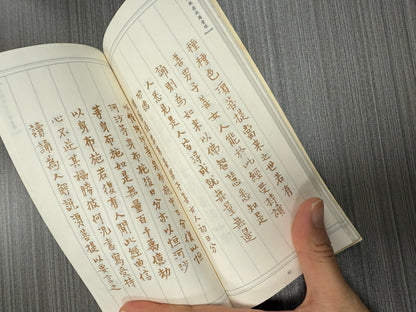 種種色須菩提當來之世若有
善男子善女人能於此經受持讀
誦則為如來以佛智慧悉知是
人悉見是人皆得成就無量無邊
功德
女人初日分
中日分復以恒
河沙等身布施後日分亦以恒河沙
等身布施如是無量百千萬億劫
以身布施若復有人聞此經典信
心不逆其福勝彼何況書寫受持
讀誦為人解說須菩提以要言之